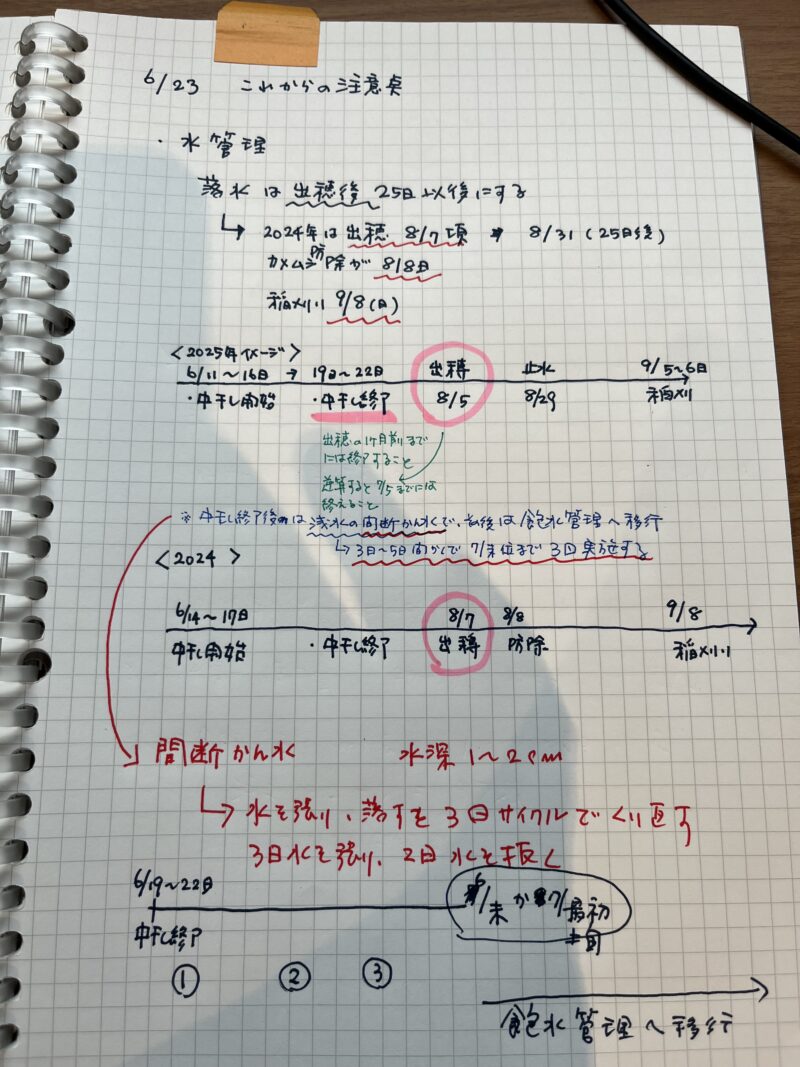 6/23 これからの注意点
・水管理
落水は出穂後 25日以後にする
↳ 2024年は出穂 8/7頃 → 8/31(25日後)
カメムシ防除が 8/8日
稲刈り 9/8(日)
<2025年イメージ>
6/11〜16日 → 19日〜22日 出穂 止水 9/5〜6日
・中干し開始 ・中干し終了 8/5 8/29 稲刈
出穂の1ヶ月前までには
には終了すること
逆算すると 7/5までには
終えること
※中干し終了後は浅水の間断かん水で、以後は飽水管理へ移行
↳ 3日〜5日間かくで 7/末位まで 3回実施する
<2024 >
6/14〜17日 8/7 8/8 9/8
中干し開始 ・中干し終了 出穂 防除 稲刈り
間断かん水 水深 1〜2cm
↳ 水を張り、落すを 3回サイクルでくり返す
3日水を張り、2日水を抜く
6/19〜22日
/末か7/最初
中干し終了
① ② ③
飽水管理へ移行